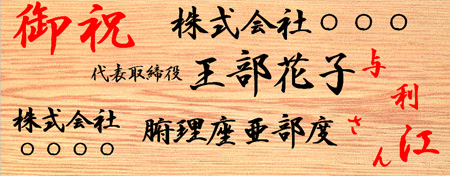 御祝
株式会社○○○
代表取締役 王部花子
与利江さん
株式会社
○○○○
腑理座亜部度